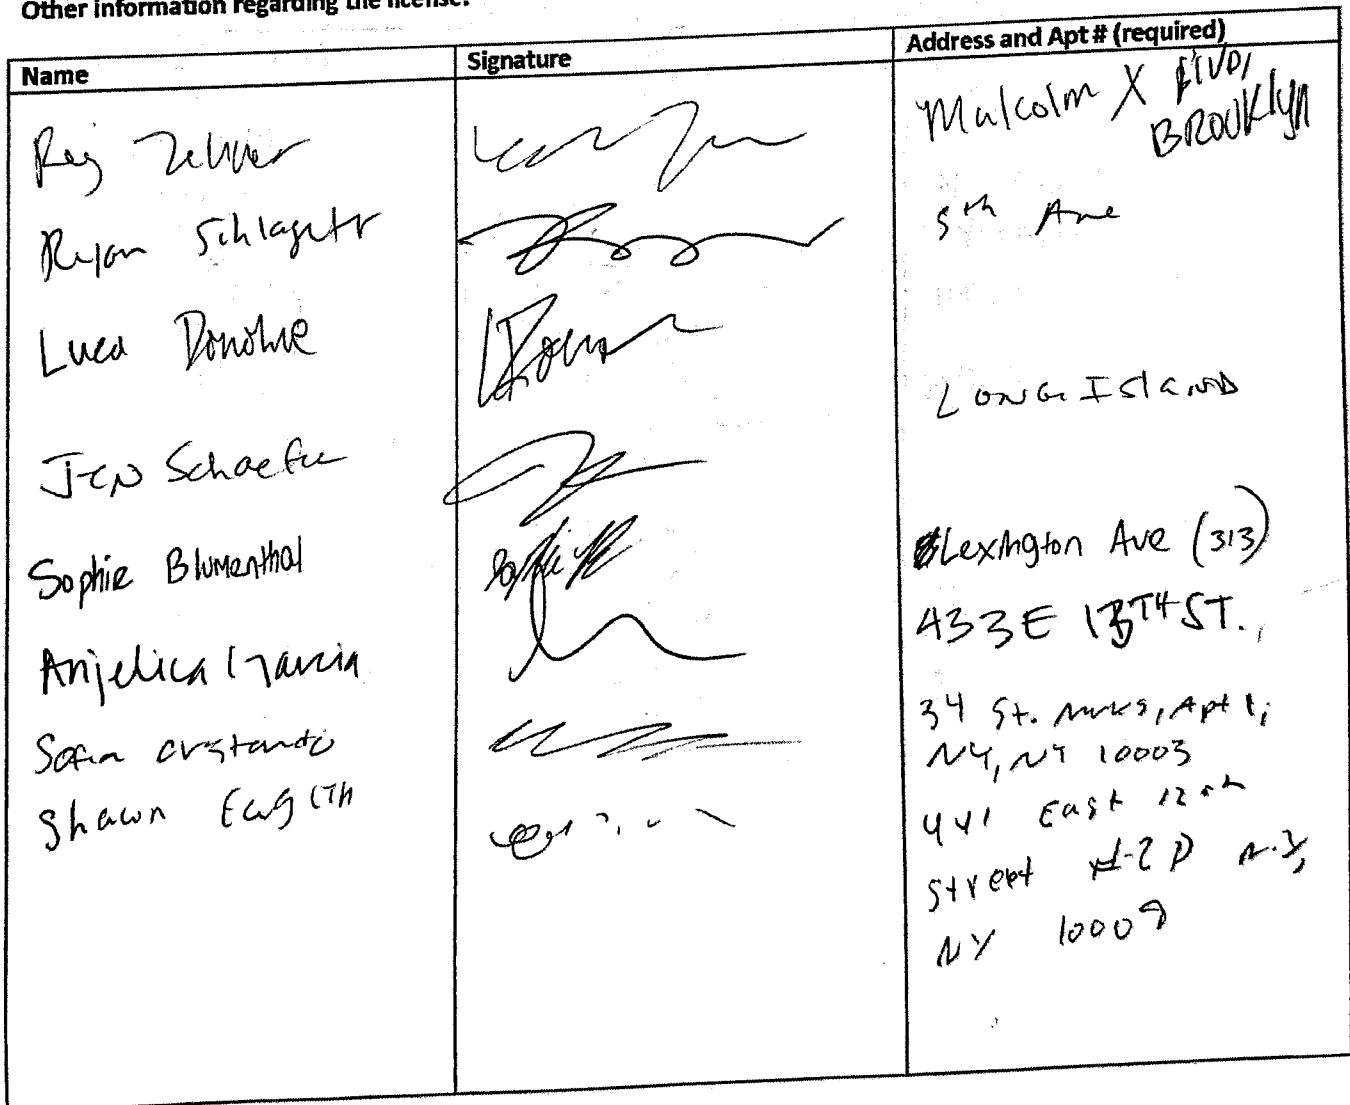 Other information regarding the license:
Name Signature Address and Apt # (required)
Malcolm X Blvd,
BROOKlyn
Reg Zellner
Ryan Schlagetr 5th Ave
Luca Donohue
Long Island
Jen Schaefer
Sophie Blumenthal Lexington Ave (313)
Anjelica Garcia 433 E 13TH ST.,
34 St. Marks, Apt 1,
Sofia NY, NY 10003
Shawn English 441 East 12th
Street #2D N.Y,
NY 10009